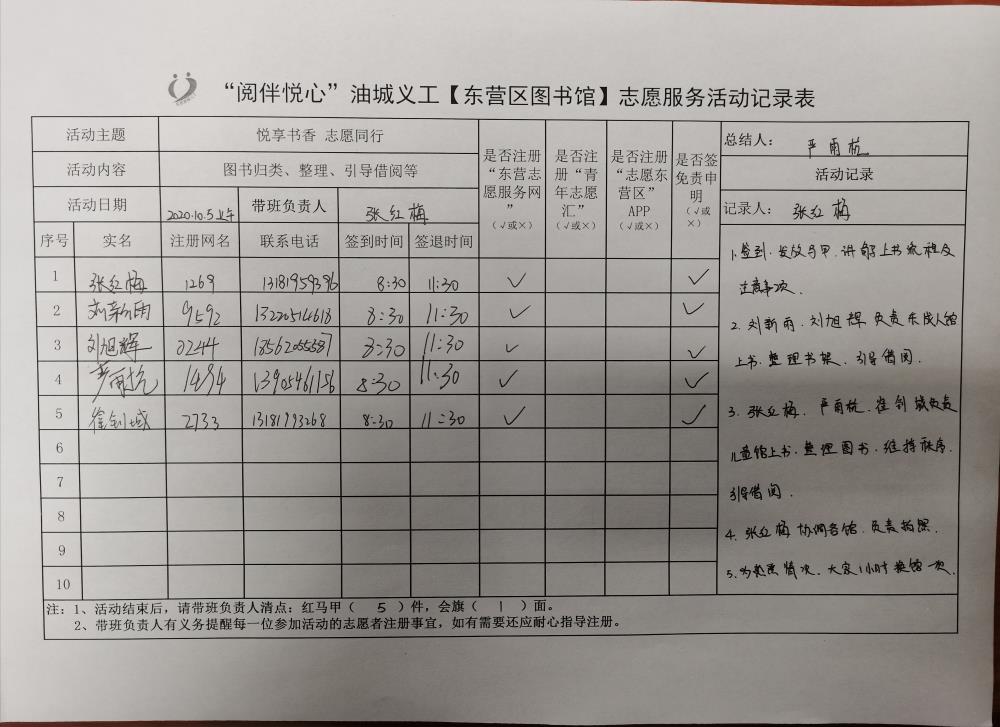 “阅伴悦心”油城义工【东营区图书馆】志愿服务活动记录表
活动主题 悦享书香 志愿同行
活动内容 图书归类、整理、引导借阅等
活动日期 2020.10.5上午 带班负责人 张红梅
是否注册“东营志愿服务网”（√或×）
是否注册“青年志愿汇”（√或×）
是否注册“志愿东营区”APP（√或×）
是否签免责申明（√或×）
总结人： 严雨杭
活动记录
记录人： 张红梅
序号 实名 注册网名 联系电话 签到时间 签退时间
1 张红梅 1269 13181959396 8:30 11:30 ✓ ✓
2 刘新雨 9592 13220514618 8:30 11:30 ✓ ✓
3 刘旭辉 0244 18562055587 8:30 11:30 ✓ ✓
4 严雨杭 1494 13905461156 8:30 11:30 ✓ ✓
5 徐剑城 2733 13181993268 8:30 11:30 ✓ ✓
6
7
8
9
10
1.签到.发放马甲.讲解上书流程及
注意事项.
2.刘新雨.刘旭辉负责东成人馆
上书.整理书架.引导借阅.
3.张红梅.严雨杭.崔剑城负责
儿童馆上书.整理图书.维持秩序.
引导借阅.
4.张红梅协调各馆.负责拍照.
5.为熟悉情况.大家1小时换馆一次.
注：1、活动结束后，请带班负责人清点：红马甲（ 5 ）件，会旗（ 1 ）面。
2、带班负责人有义务提醒每一位参加活动的志愿者注册事宜，如有需要还应耐心指导注册。